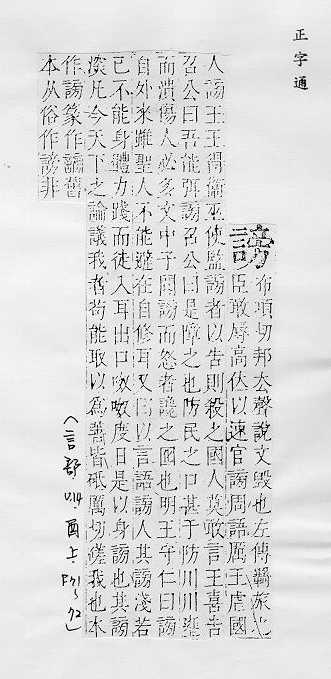 正字通
謗 布項切邦去聲說文毀也左傳羈旅之
臣敢辱高位以速官謗周語厲王虐國
人謗王王得衛巫使監謗者以告則殺之國人莫敢言王喜告
召公曰吾能弭謗召公曰是障之也防民之口甚于防川川壅
而潰傷人必多文中子聞謗而怒者讒之囮也明王守仁曰謗
自外來雖聖人不能避在自修耳又曰以言語謗人其謗淺若
己不能身體力踐而徒入耳出口呶呶度日是以身謗也其謗
深凡今天下之論議我者苟能取以為善皆砥厲切磋我也本
作謗篆作謗舊
本从俗作謗非
(言部 酉上. P71~72)